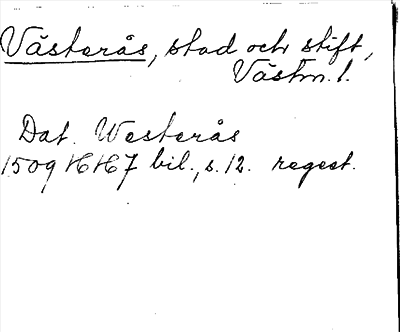 Västerås, stad och stift,
Västm. l.
Dat. Westerås
1509 16/6 67 bil., s. 12. regest.